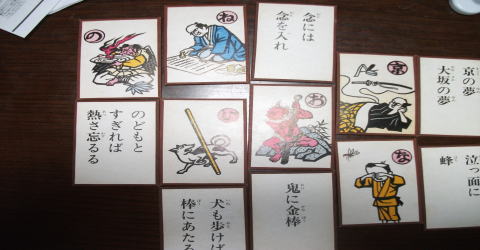 の
ね
念には
念を入れ
京
京の夢
大坂の夢
のどもと
すぎれば
熱さ忘るる
い
お
鬼に金棒
な
泣っ面に
蜂
犬も歩けば
棒にあたる